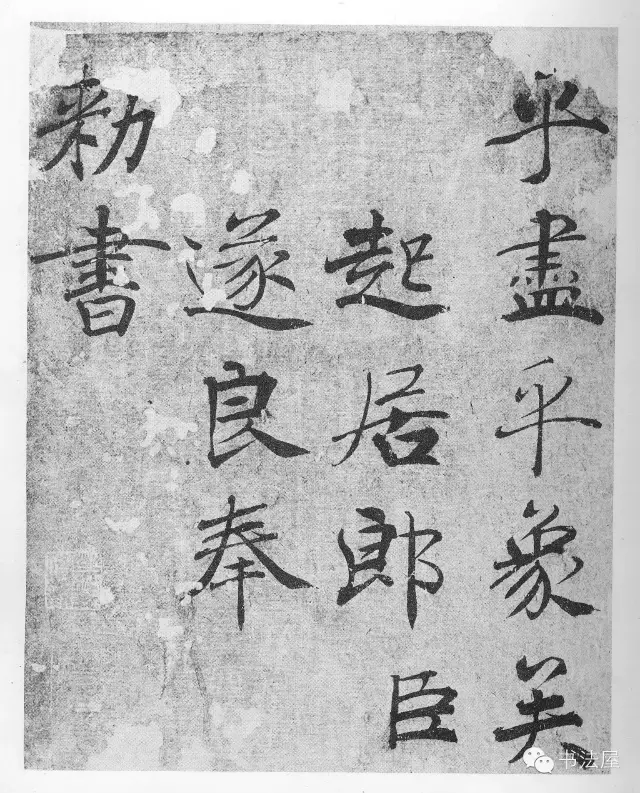 乎盡乎象矣
起居郎臣
遂良奉
勑書
书法屋